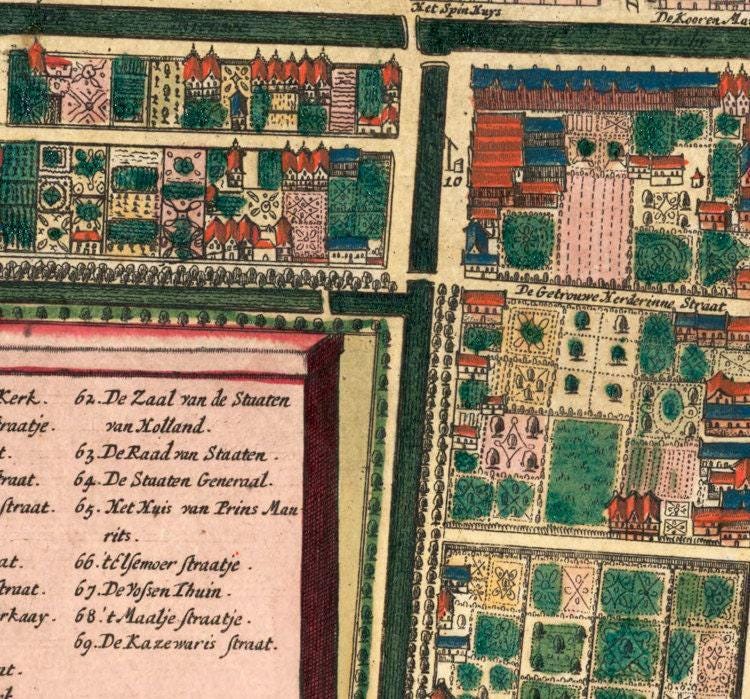 Het Spin Huys
De Kooren Ma
10
De Getrouwe Herderinne Straat
Kerk.
raatje.
t.
traat.
straat.
at.
traat.
rkaay.
at.
62. De Zaal van de Staaten
van Holland.
63. De Raad van Staaten.
64. De Staaten Generaal.
65. Het Huis van Prins Mau
rits.
66. 't Elsemoer straatje.
67. De Vossen Thuin.
68 't Maalje straatje.
69. De Kazewaris straat.